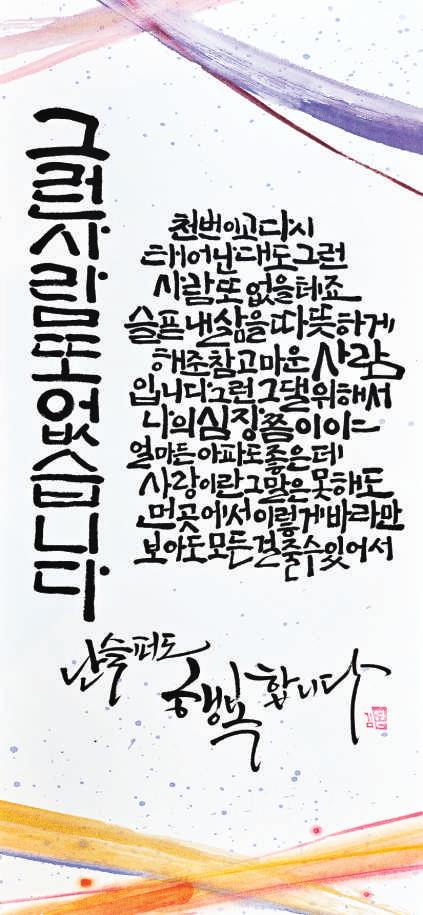 그런 사람 또 없습니다
천번이고 다시
태어난대도 그런
사람 또 없을테죠
슬픈 내 삶을 따뜻하게
해준 참 고마운 사람
입니다 그런 그댈 위해서
나의 심장쯤이야
얼마든 아파도 좋은데
사랑이란 그 말은 못해도
먼곳에서 이렇게 바라만
보아도 모든걸 줄수있어서
난 슬퍼도
행복합니다